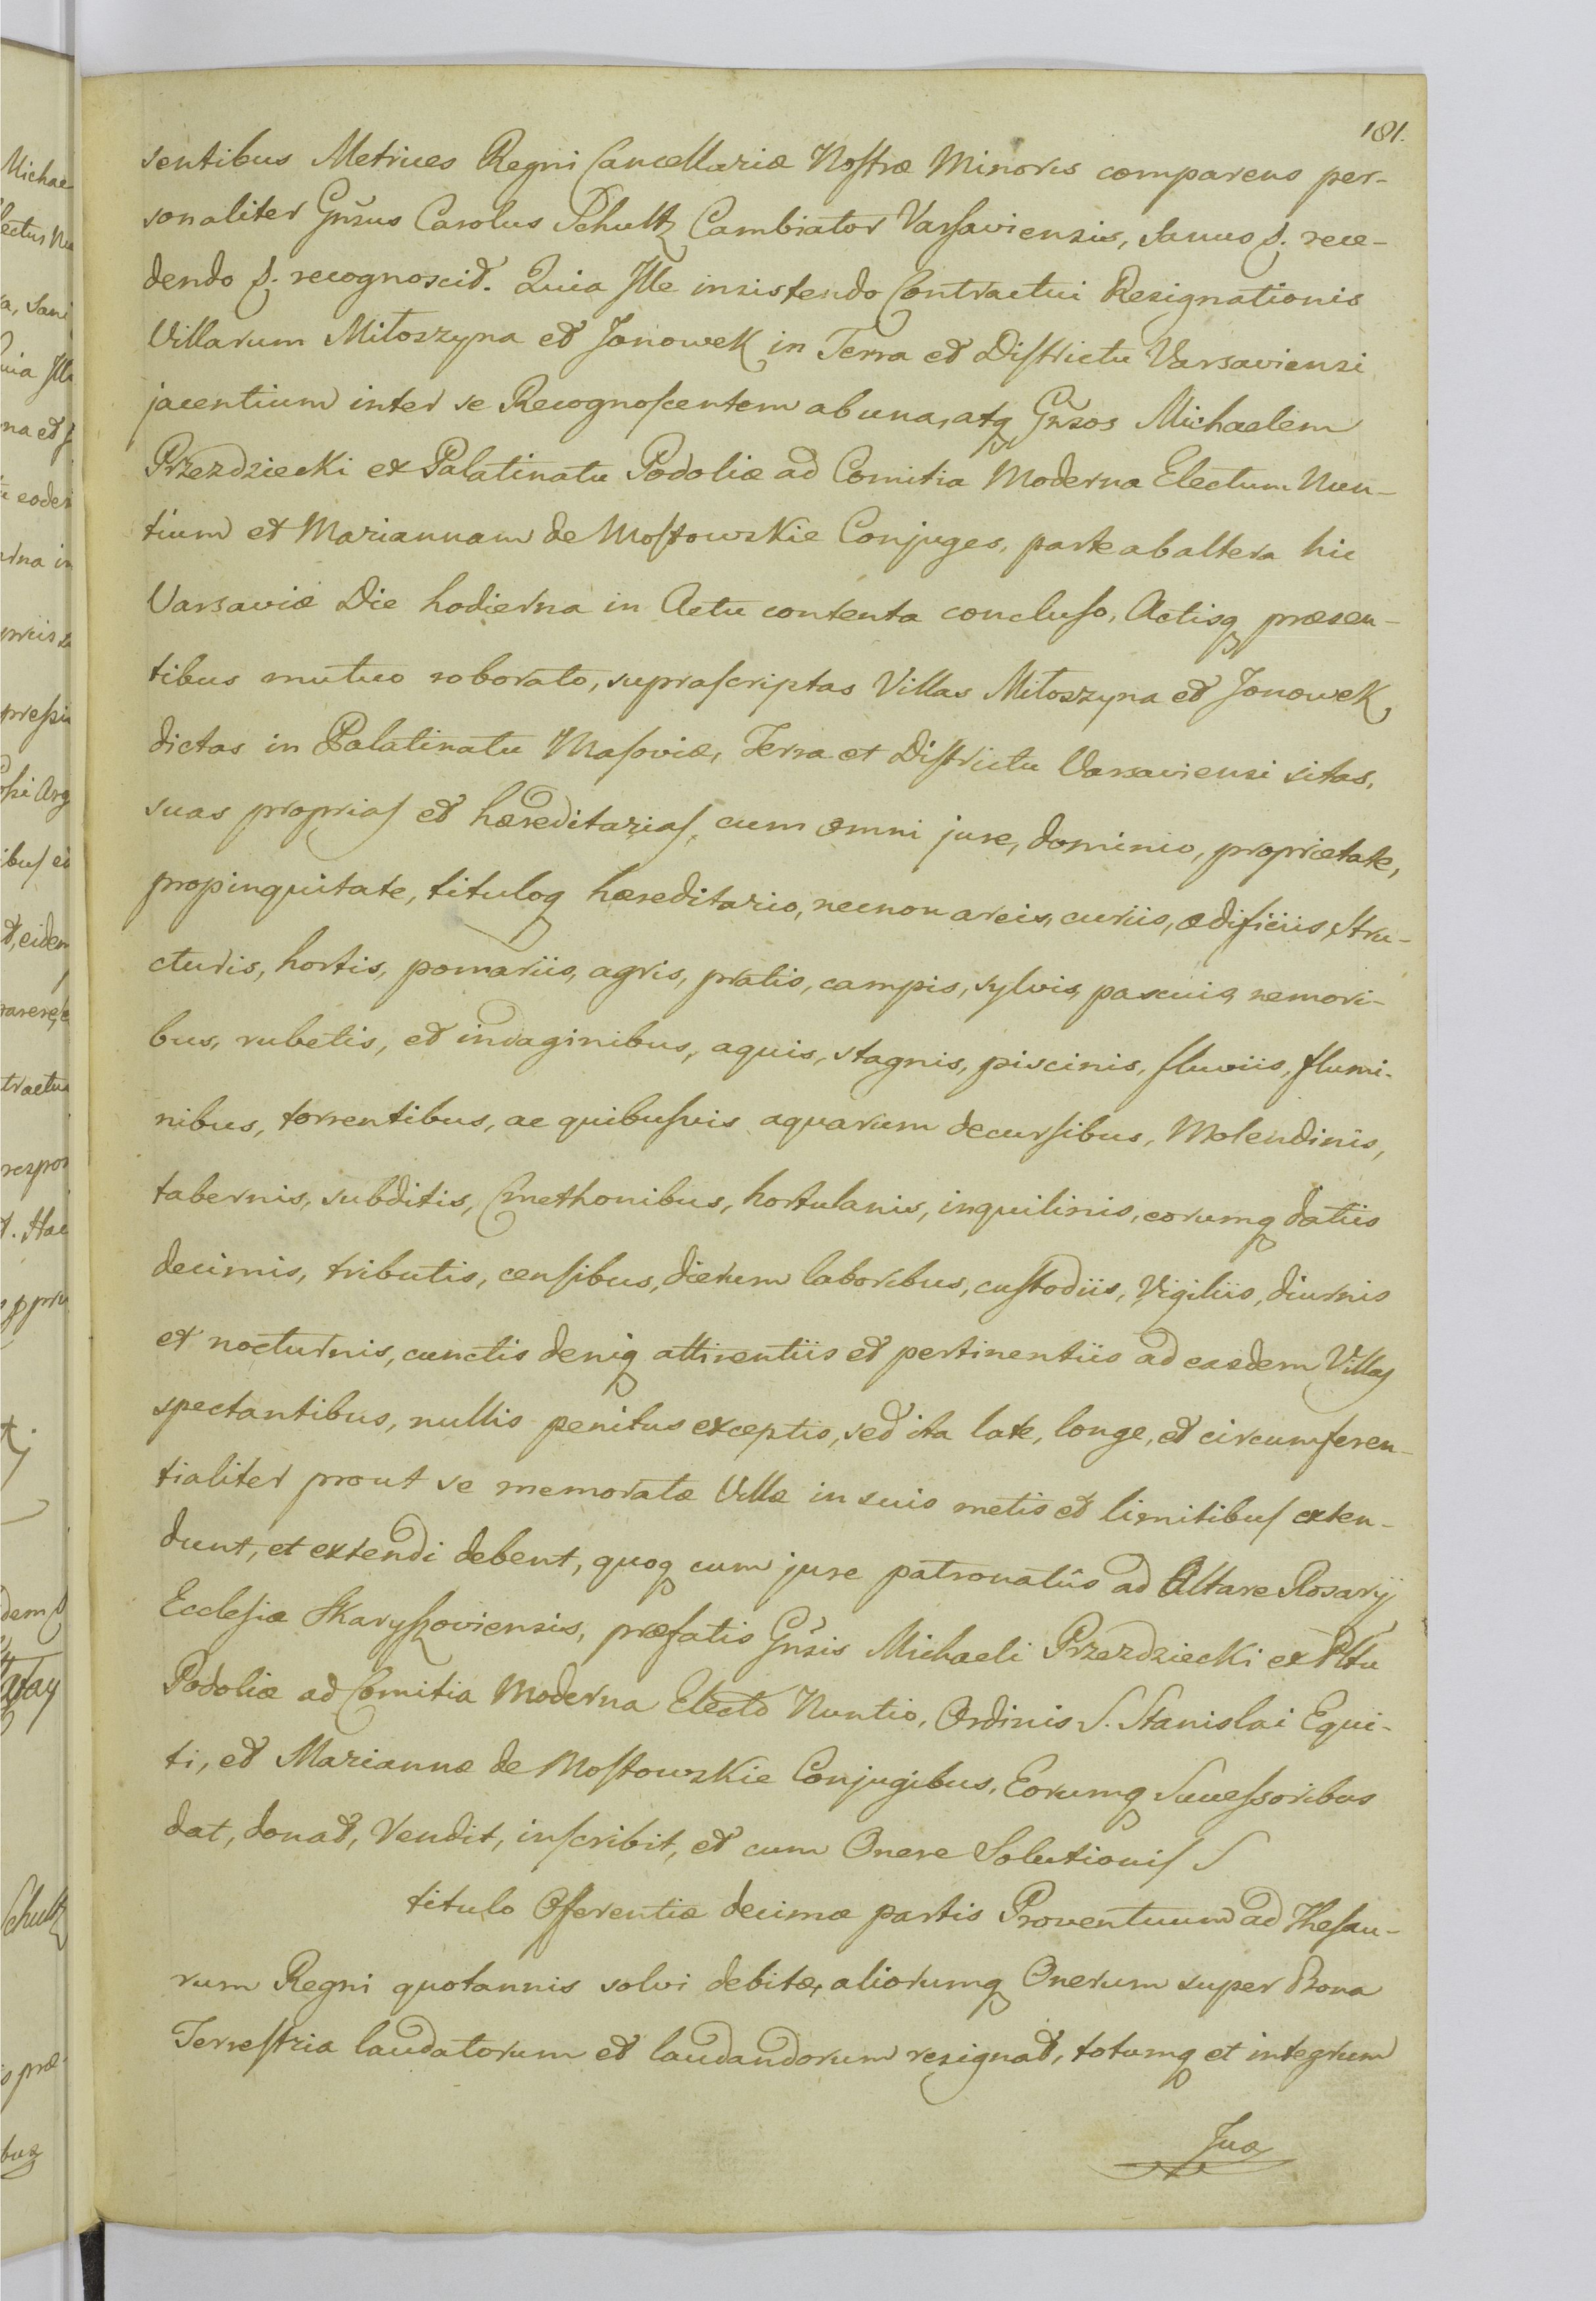 181.
sentibus Metrices Regni Cancellariæ Nostræ Minoris comparens per-
sonaliter Gnsus Carolus Schultz Cambiator Varsaviensis, Sanus p. rece-
dendo p. recognoscit. Quia Ille insistendo Contractui Resignationis
Villarum Miłoszyna et Janowek in Terra et Districtu Varsaviensi
jacentium inter se Recognoscentem ab una, atq Gnsos Michaelem
Przezdziecki ex Palatinatu Podoliæ ad Comitia Moderna Electum Nun-
tium et Mariannam de Mostowskie Conjuges, parte ab altera hic
Varsaviæ Die hodierna in Actu contenta concluso, Actisq præsen-
tibus mutuo roborato, suprascriptas Villas Miłoszyna et Janowek,
dictas in Palatinatu Masoviæ, Terra et Districtu Varsaviensi sitas,
suas proprias et hæreditarias, cum omni jure, dominio, proprietate,
propinquitate, tituloq hæreditario, necnon areis, curiis, ædificiis, Stru-
cturis, hortis, pomariis, agris, pratis, campis, sylvis, pascuis, nemori-
bus, rubetis, et indaginibus, aquis, stagnis, piscinis, fluviis, flumi-
nibus, torrentibus, ac quibusvis aquarum decursibus, Molendinis,
tabernis, subditis, Cmethonibus, hortulanis, inquilinis, eorumq datiis
decimis, tributis, censibus, dierum laboribus, custodiis, Vigiliis, diurnis
et nocturnis, cunctis deniq attinentiis et pertinentiis ad easdem Villas
spectantibus, nullis penitus exceptis, sed ita late, longe, et circumferen-
tialiter prout se memoratæ Villæ in suis metis et limitibus exten-
dunt, et extendi debent, quoq cum jure patronatûs ad Altare Rosarij
Ecclesiæ Skaryszoviensis, præfatis Gnsis Michaeli Przezdziecki ex Pltu
Podoliæ ad Comitia Moderna Electo Nuntio, Ordinis S. Stanislai Equi-
ti, et Mariannæ de Mostowskie Conjugibus, Eorumq Successoribus
dat, donat, Vendit, inscribit, et cum Onere Solutionis S
titulo Offerentiæ decimæ partis Proventuum ad Thesau-
rum Regni quotannis solvi debitæ, aliorumq Onerum super Bona
Terrestria laudatorum et laudandorum resignat, totumq et integrum
Jus